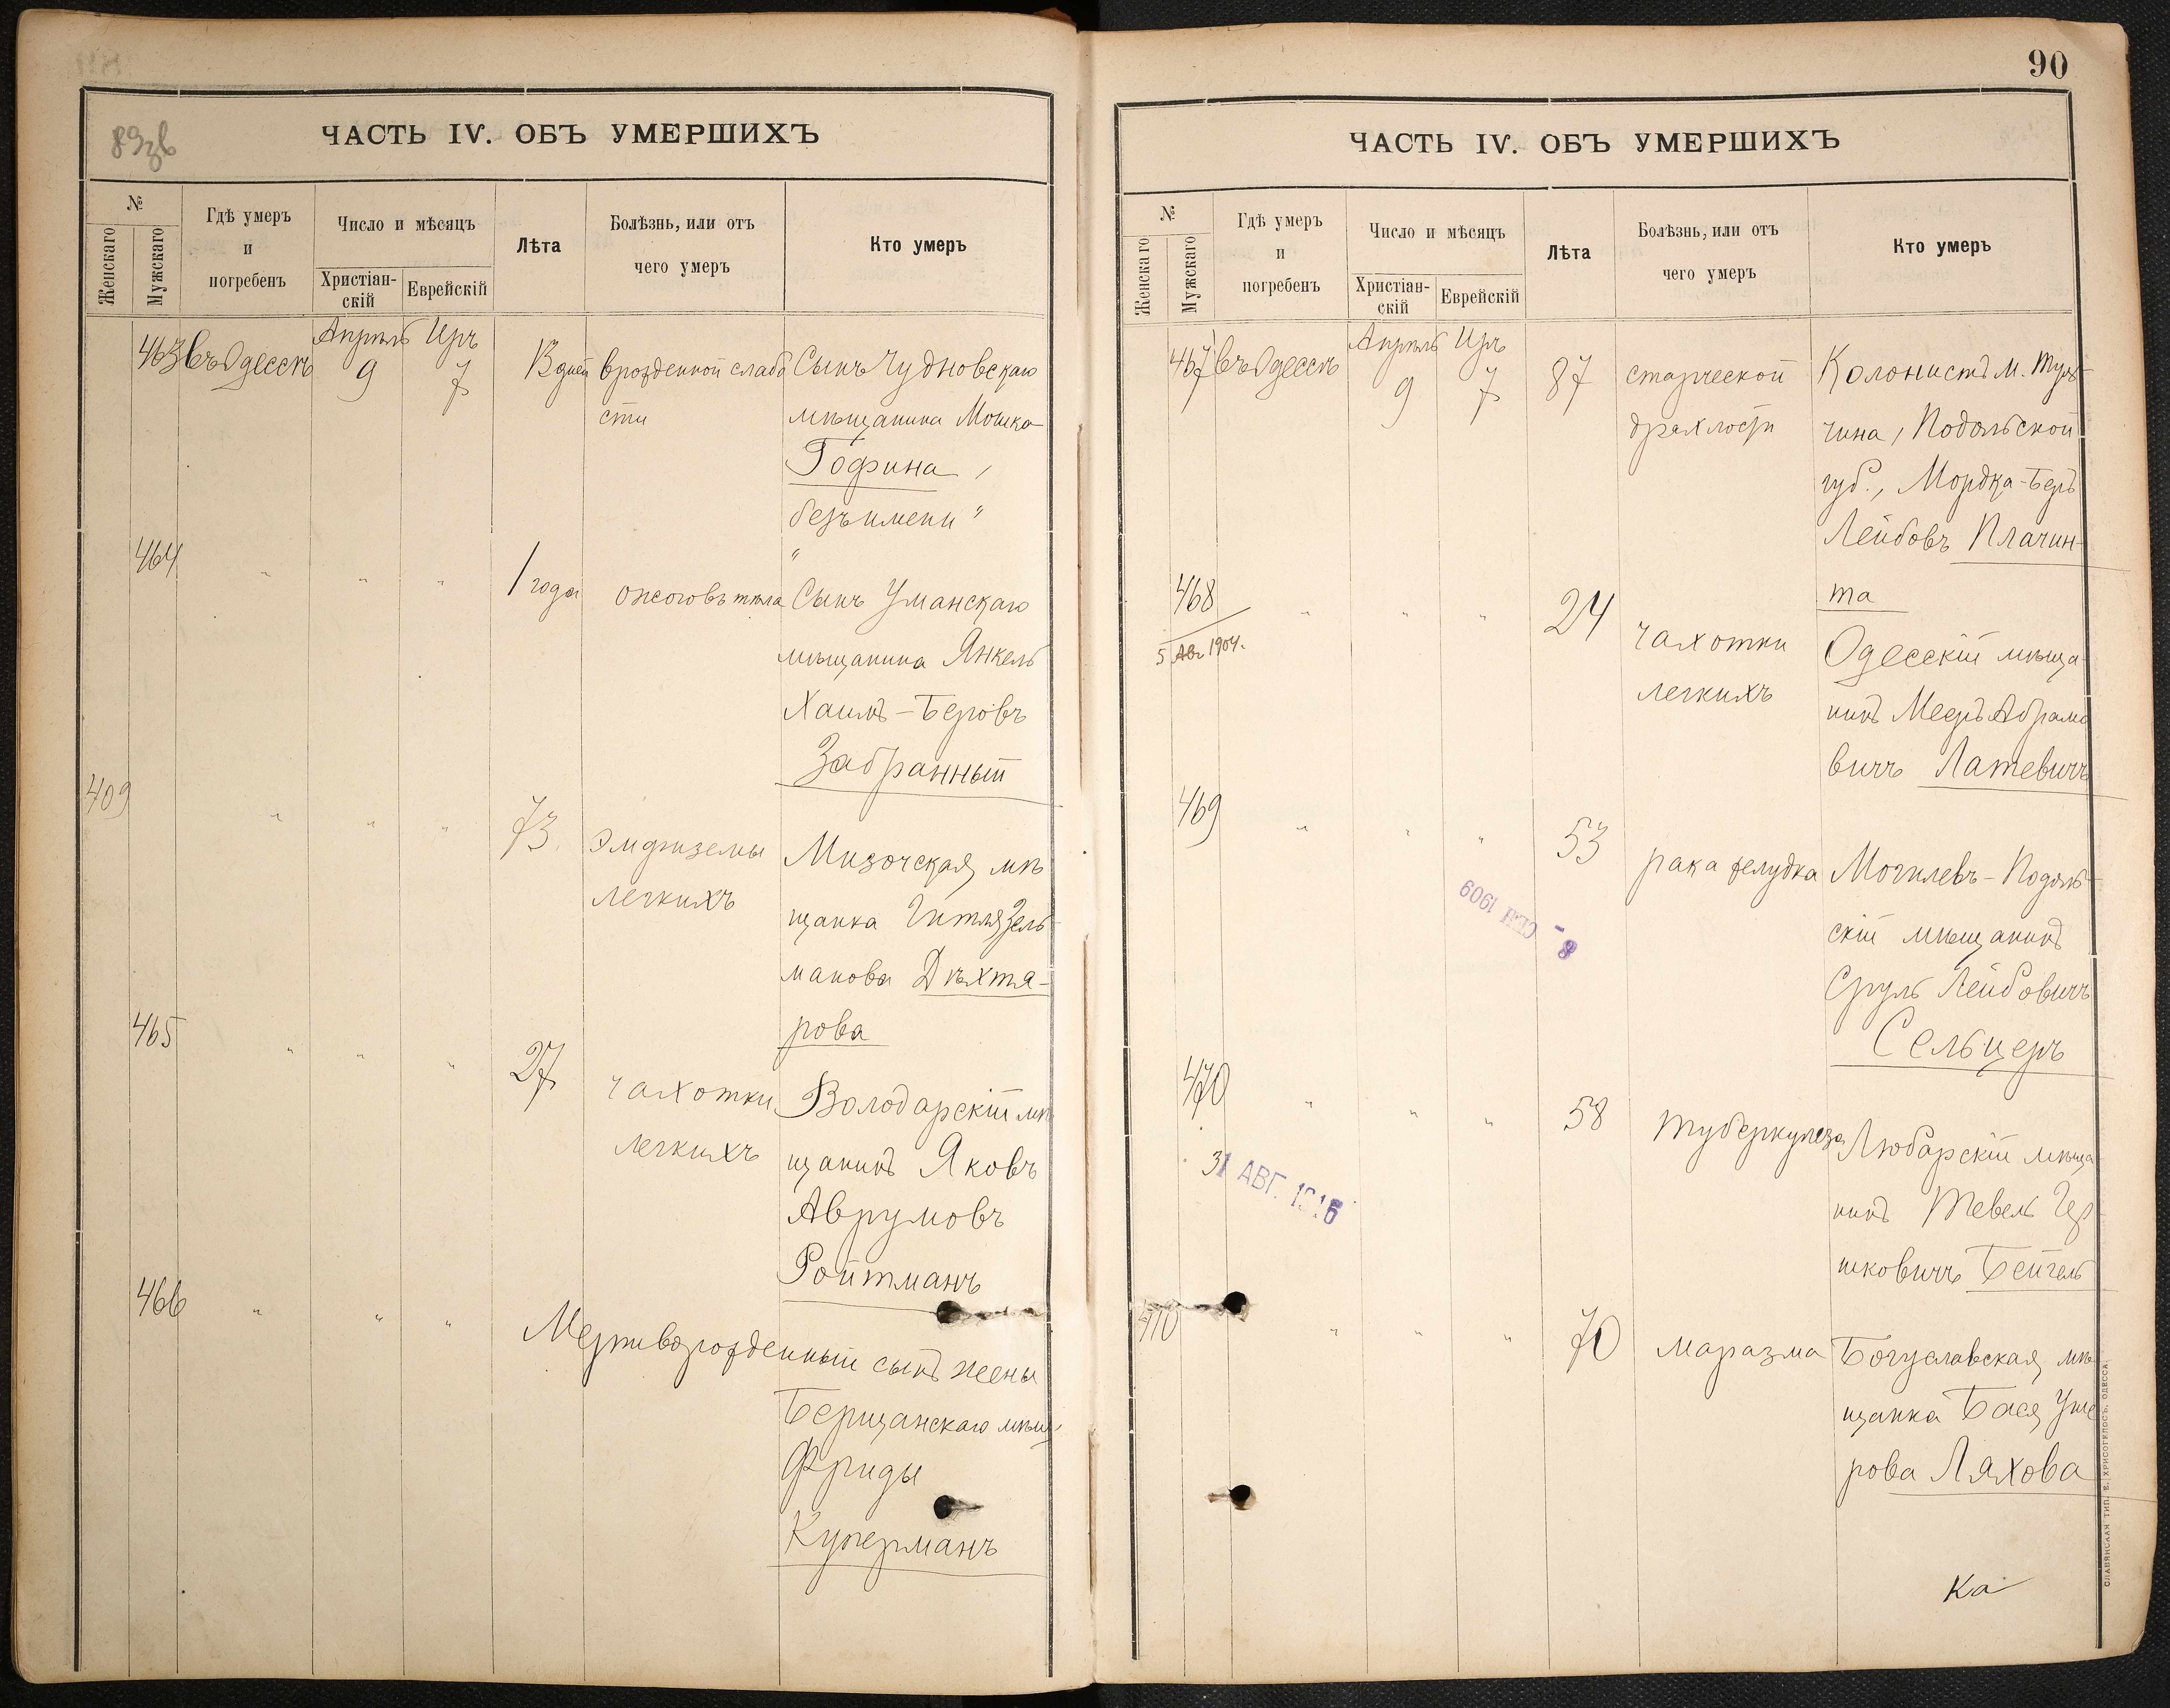 89зв
ЧАСТЬ IV. ОБЪ УМЕРШИХЪ
№
Женскаго
Мужскаго
Гдѣ умеръ
и
погребенъ
Число и мѣсяцъ
Христіан-
скій
Еврейскій
Лѣта
Болѣзнь, или отъ
чего умеръ
Кто умеръ
463 въ Одессѣ Апрѣль 9 Иръ 7 13 дней врожденной слабо Сынъ Чудновскаго
сти мѣщанина Мошка
Гофина,
безъ имени "
464 " " " 1 года ожоговъ тѣла Сынъ Уманскаго
мѣщанина Янкель
Хаимъ-Беровъ
Забранный
409 " " " 73 эмфиземы Мизочская мѣ
легкихъ щанка Гитля Зель
манова Дѣхтя-
рова
465 " " " 27 чахотки Володарскій мѣ
легкихъ щанинъ Яковъ
Аврумовъ
Ройтманъ
466 " " " Мертворожденный сынъ жены
Берщанскаго мѣщ.
Фриды
Куперманъ
90
ЧАСТЬ IV. ОБЪ УМЕРШИХЪ
№
Женскаго
Мужскаго
Гдѣ умеръ
и
погребенъ
Число и мѣсяцъ
Христіан-
скій
Еврейскій
Лѣта
Болѣзнь, или отъ
чего умеръ
Кто умеръ
467 въ Одессѣ Апрѣль 9 Иръ 7 87 старческой Колонистъ м. Туль-
дряхлости чина, Подольской
губ., Мордка-Беръ
Лейбовъ Плачин-
та
468 " " " 24 чахотки Одесскій мѣща-
5 Авг 1904.
легкихъ нинъ Мееръ Абрамо
вичъ Латевичъ
469 " " " 53 рака желудка Могилевъ-Подоль-
- 8 СЕН 1909
скій мѣщанинъ
Сруль Лейбовичъ
Сельцеръ
470 " " " 58 туберкулеза Любарскій мѣща-
31 АВГ. 1916
нинъ Тевель Гер
шковичъ Бейгель
410 " " " 70 маразма Богуславская мѣ
щанка Бася Уше
рова Ляхова
Ка
СЛАВЯНСКАЯ ТИП. Е. ХРИСОГЕЛОСЪ, ОДЕССА.